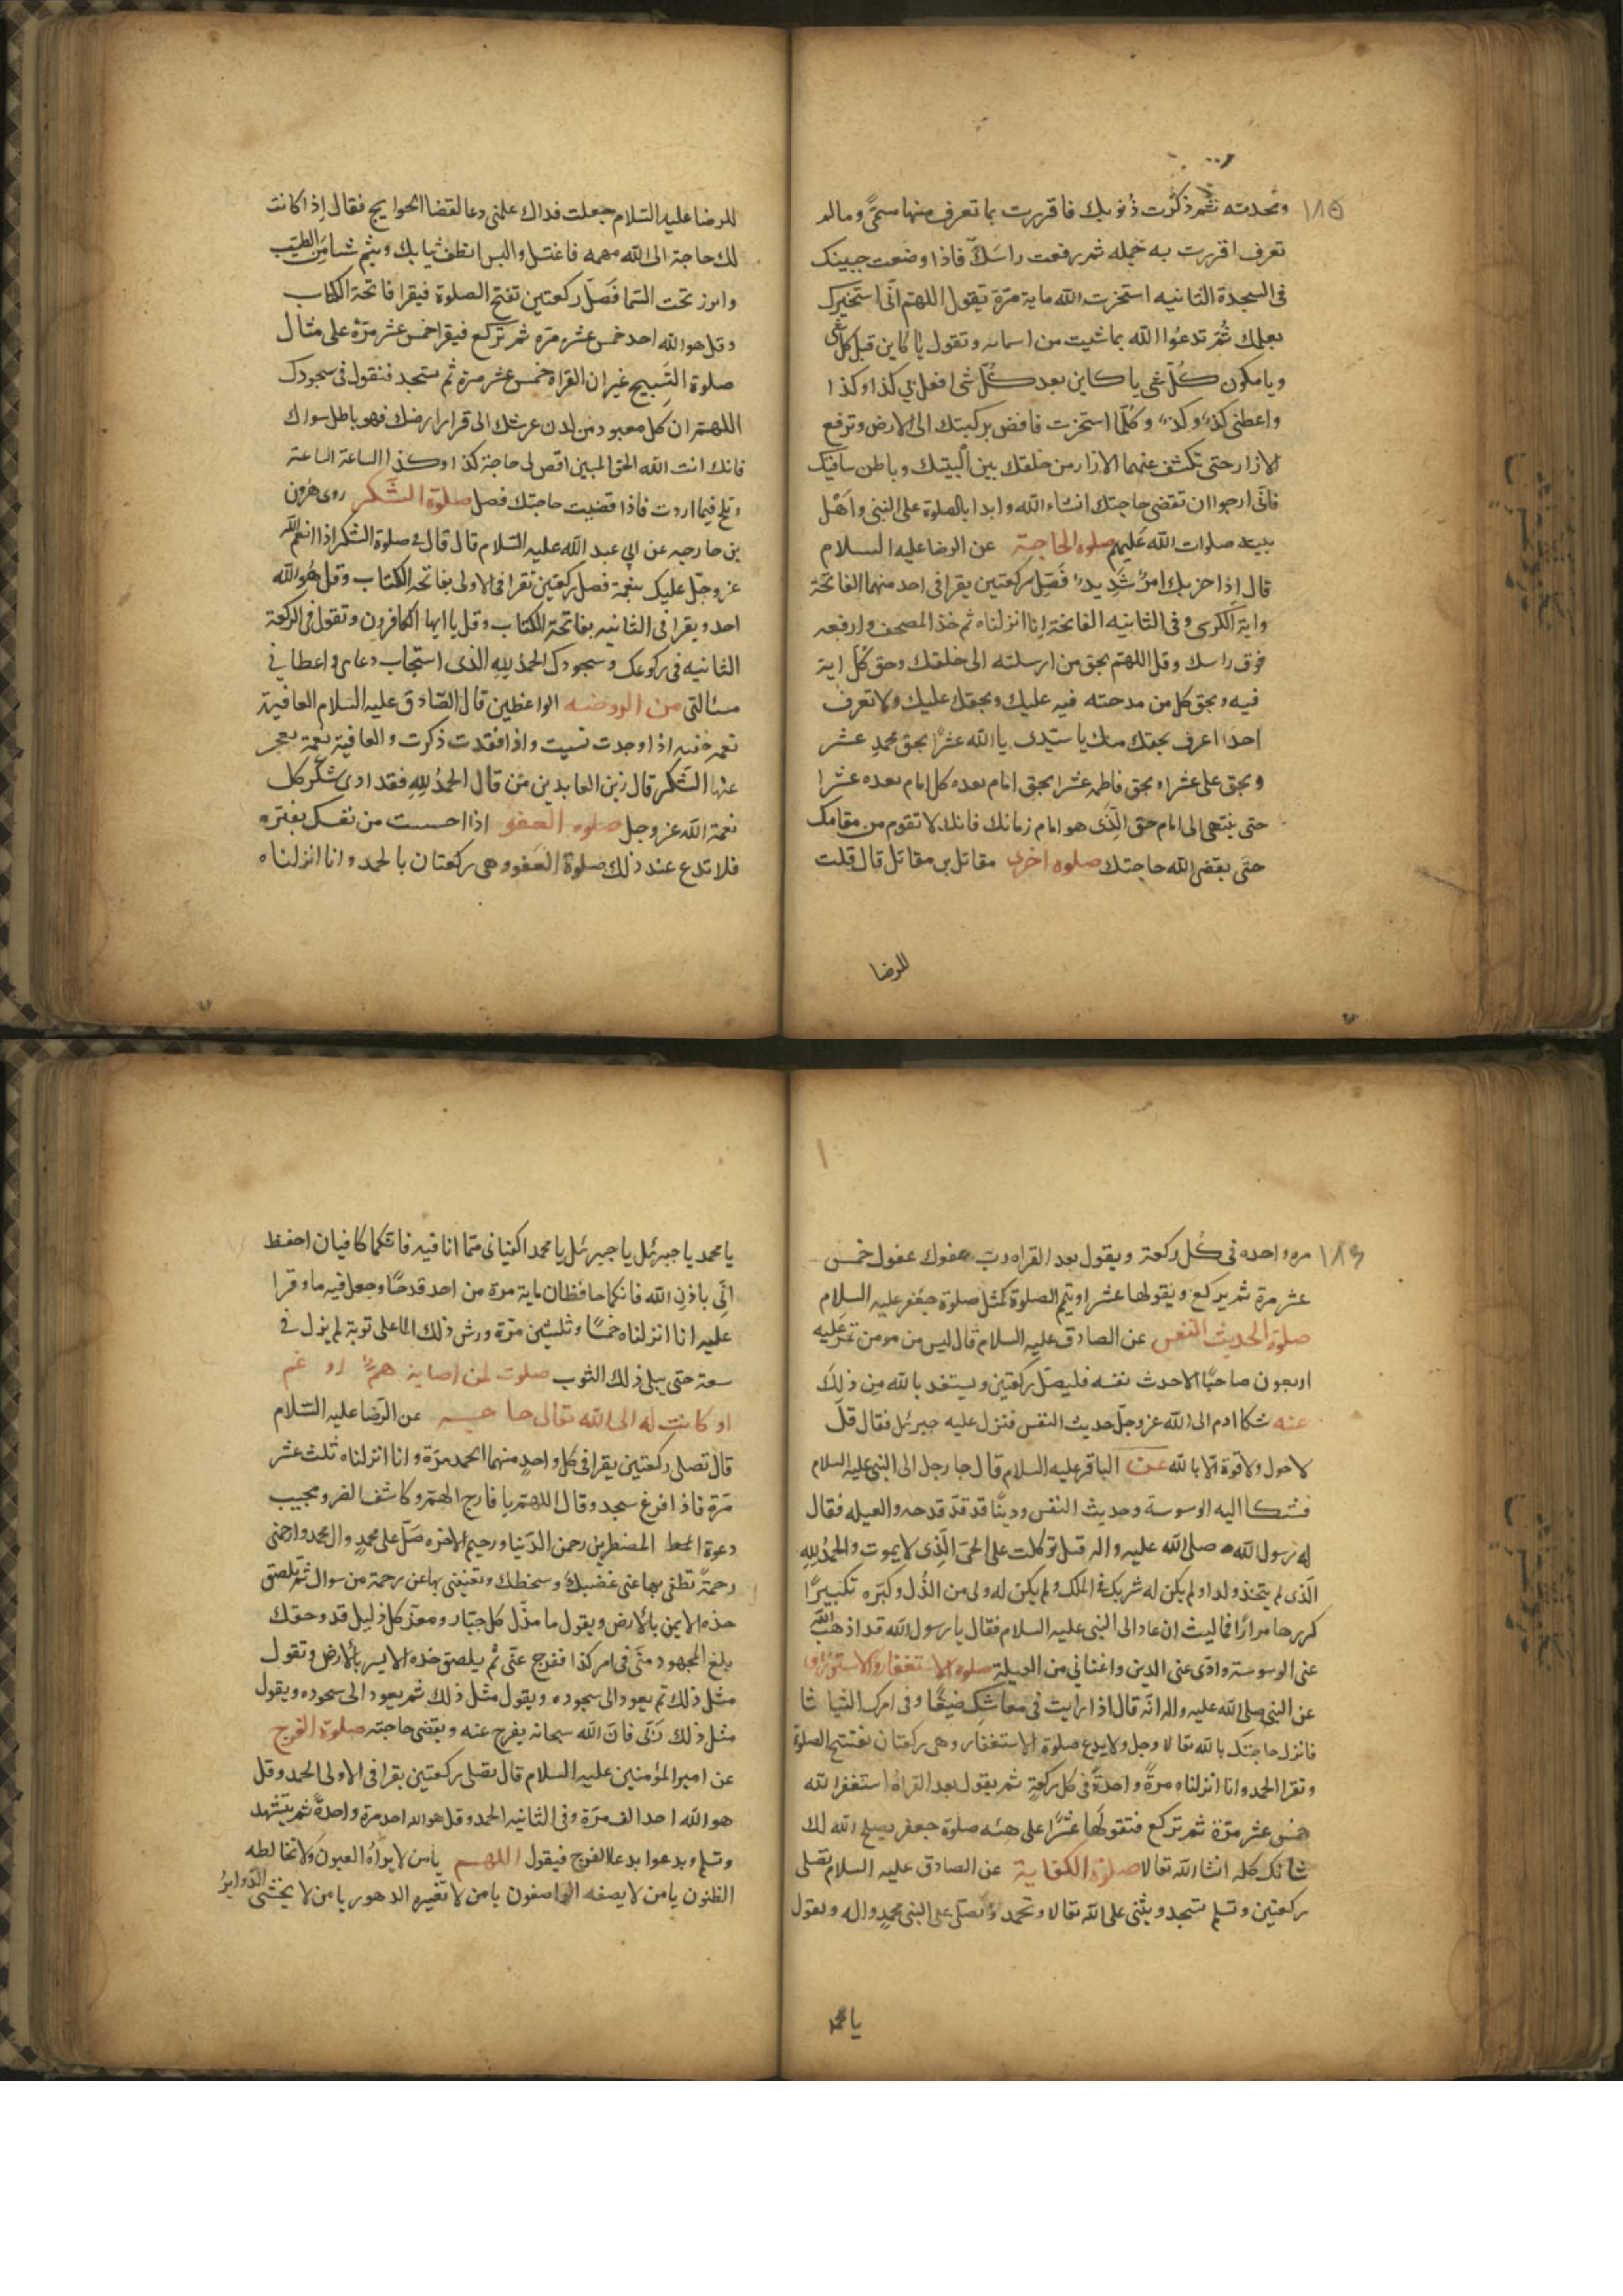 ١٨٥
وتمجدته ثم ذكرت ذنوبك فاقررت بما تعرف منها مسمّى ومالم
تعرف اقررت به جمله ثم رفعت راسك فاذا وضعت جبينك
فى السجدة الثانيه استخرت الله ماية مرّة تقول اللهم انّى استخيرك
بعلمك ثمّ تدعوا الله بما شيت من اسمايه وتقول يا كاين قبل كل شى
ويا مكون كلّ شى يا كاين بعد كلّ شى افعل بي كذا وكذا
واعطنى كذا وكذا وكلّما استخرت فافض بركبتك الى الارض وترفع
الازار حتى تكشف عنهما الازار من خلفك بين اليتيك وباطن ساقيك
فانّى ارجوا ان تقضى حاجتك انشاء الله وابدا بالصلوة على النبى واهل
بيته صلوات الله عليهم صلوة الحاجة عن الرضا عليه السلام
قال اذا حزبك امرٌ شديدٌ فصلّ ركعتين يقرا فى احد منهما الفاتحة
واية الكرسى وفى الثانيه الفاتحة انا انزلناه ثم خذ المصحف وارفعه
فوق راسك وقل اللهم بحق من ارسلته الى خلقك وحق كل اية
فيه وبحق كل من مدحته فيه عليك وبحقك عليك ولا تعرف
احدا اعرف بحقك منك يا سيّدى يا الله عشرًا بحق محمدٍ عشر
وبحق على عشرا وبحق فاطمه عشرا بحق امام بعده كل امام بعده عشرا
حتى ينتهى الى امام حق الّذى هو امام زمانك فانك لا تقوم من مقامك
حتى يقضى الله حاجتك صلوه اخرى مقاتل بن مقاتل قال قلت
للرضا
للرضا عليه السّلام جعلت فداك علمنى دعا لقضا الحوايج فقال اذا كانت
لك حاجة الى الله مهمه فاغتسل والبس انظف ثيابك وشم شيا من الطيب
وابرز تحت السّما فصلّ ركعتين تفتح الصلوة فيقرا فاتحة الكتاب
وقل هو الله احد خمس عشر مرّه ثم تركع فيقرا خمس عشر مرّه على مثال
صلوة التسبيح غير ان القراه خمس عشر مرة ثم تسجد فتقول فى سجودك
اللهم ان كل معبود من لدن عرشك الى قرار ارضك فهو باطل سواك
فانك انت الله الحق المبين اقض لى حاجة كذا وكذا الساعة الساعة
وتلح فيما اردت فاذا قضيت حاجتك فصل صلوة الشكر روى هرون
بن خارجه عن ابى عبد الله عليه السّلام قال قال فى صلوة الشكر اذا انعم الله
عز وجلّ عليك بنعمة فصل ركعتين تقرا فى الاولى بفاتحه الكتاب وقل هو الله
احد ويقرا فى الثانيه بفاتحة الكتاب وقل يا ايها الكافرون وتقول فى الركعة
الثانيه فى ركوعك وسجودك الحمد لله الذى استجاب دعاى واعطانى
مسالتى من الروضه الواعظين قال الصّادق عليه السلام العافية
نعمه خفيه اذا وجدت نسيت واذا فقدت ذكرت والعافية نعمة يعجز
عنها الشّكر قال زين العابدين من قال الحمد لله فقد ادى شكر كل
نعمة الله عز وجل صلوه العفو اذا احسست من نفسك بفتره
فلا تدع عند ذلك صلوة العفو وهى ركعتان بالحمد وانا انزلناه
١٨٦
مره واحده فى كل ركعة ويقول بعد القراه ربّ عفوك عفوك خمس
عشر مرة ثم يركع ويقولها عشرا ويتم الصلوة كمثل صلوة جعفر عليه السلام
صلوة الحديث النفس عن الصادق عليه السلام قال ليس من مومن تمر عليه
اربعون صاحبًا الا حدث نفسه فليصلّ ركعتين ويستعذ بالله من ذلك
عنه شكا ادم الى الله عز وجلّ حديث النفس فنزل عليه جبرئل فقال قل
لا حول ولا قوة الا بالله عن الباقر عليه السلام قال جا رجل الى النبى عليه السلام
فشكا اليه الوسوسة وحديث النفس ودينًا قد فدحه والعيله فقال
له رسول الله صلى الله عليه واله قل توكلت على الحىّ الّذى لا يموت والحمد لله
الّذى لم يتخذ ولدا ولم يكن له شريك فى الملك ولم يكن له ولى من الذّل وكبّره تكبيرًا
كررها مرارًا فما لبث ان عاد الى النبى عليه السلام فقال يا رسول الله قد اذهب الله
عنى الوسوسة وادّى عنى الدين واغنانى من العيلة صلوة الاستغفار
عن النبى صلى الله عليه واله انّه قال اذا رايت فى معاشك ضيقًا وفى امرك
فانزل حاجتك بالله تعالا وجل ولا يدع صلوة الاستغفار وهى ركعتان يفتتح الصلوة
وتقرا الحمد وانا انزلناه مرةً واحدةً فى كل ركعةٍ ثم يقول بعد القراة استغفر الله
خمس عشر مرّة ثم تركع فتقولها عشرًا على هيئه صلوة جعفر يصلح الله لك
شانك كله انشا الله تعالا صلوة الكفاية عن الصادق عليه السلام تصلى
ركعتين وتسلم تسجد ويثنى على الله تعالا وتحمد وتصلّى على النبى محمدٍ واله وتقول
يا محمد
يا محمد يا جبرئل يا جبرئل يا محمد اكفيانى ممّا انا فيه فانكما كافيان احفظ
انّى باذن الله فانكما حافظان ماية مرة من احد قدحًا وجعل فيه ما وقرا
عليه انا انزلناه خمسًا وثلثين مرّة ورش ذلك الما على ثوبة لم يزل فى
سعة حتى يبلى ذلك الثوب صلوت لمن اصابه همٌ او غم
او كانت له الى الله تعالى حاجه عن الرّضا عليه السّلام
قال تصلى ركعتين يقرا فى كل واحدٍ منهما الحمد مرّة وانا انزلناه ثلث عشر
مرّة فاذا فرغ سجد وقال اللهم يا فارج الهم وكاشف الغم ومجيب
دعوة المضطرين رحمن الدّنيا ورحيم الاخره صلّ على محمدٍ وال محمد وارحمنى
رحمةً تطفى بها عنى غضبك وسخطك وتغنينى بها عن رحمة من سواك ثم يلصق
خده الايمن بالارض ويقول يا مذلّ كل جبّار ومعز كل ذليل قد وحقك
بلغ المجهود منّى فى امر كذا ففرج عنّى ثم يلصق خده الايسر بالارض وتقول
مثل ذلك ثم يعود الى سجوده ويقول مثل ذلك ثم يعود الى سجوده ويقول
مثل ذلك فانّ الله سبحانه يفرج عنه ويقضى حاجته صلوة الفرج
عن امير المؤمنين عليه السلام قال تصلى ركعتين يقرا فى الاولى الحمد وقل
هو الله احد الف مرّة وفى الثانيه الحمد وقل هو الله احد مرة واحدةً ثم يتشهد
وتسلم ويدعوا بدعا الفرج فيقول اللهم يا من لا يراهُ العيون ولا تخالطه
الظنون يا من لا يصفه الواصفون يا من لا تغيره الدهور يا من لا يخشى الدوايرُ